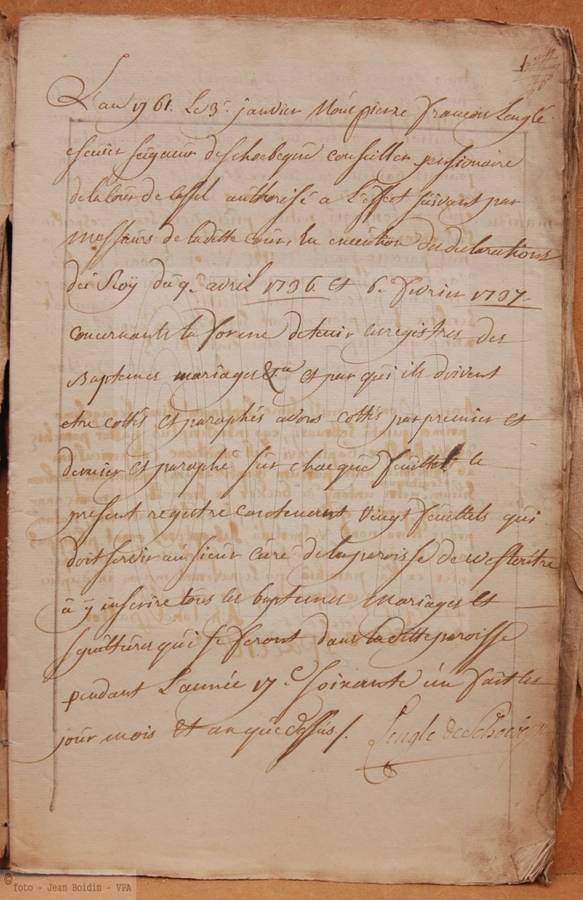 1
L'an 1761. Le 3e. janvier Nous pierre francois Lenglé
escuier seigneur de Schoebeque conseiller pensionaire
de la cour de Cassel authorisé a L'effet suivant par
Messieurs de laditte cour, En execution des declarations
du Roÿ du 9e. avril 1736 et 6e. fevrier 1737
concernants la forme de tenir les registres des
Baptemes mariages &ca et par qui ils doivent
etre cottés et paraphés avons cotté par premier et
dernier et paraphé sur chaeque feuillet le
present registre contenant vingt feuillets qui
doit servir au sieur curé de la paroisse de Westcitre
a ÿ inscrire tous les baptemes Mariages et
sepultures qui se feront dans laditte paroisse
pendant L'année 17c soixante un fait les
jour mois et an que dessus /. Lenglé de Schoebeque
© foto - Jean Boidin - VPA